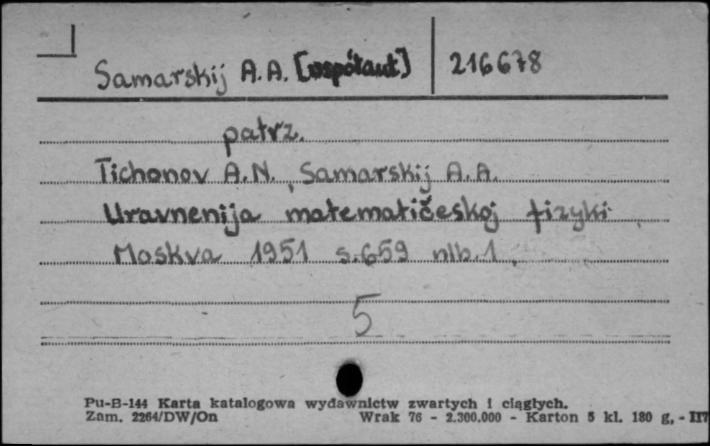 Samarskij A.A. [współaut] 216678
patrz.
Tichonov A.N., Samarskij A.A.
Uravnenija matematičeskoj fizyki
Moskva 1951 s.659 nlb.1.
5
Pu-B-144 Karta katalogowa wydawnictw zwartych i ciągłych.
Zam. 2264/DW/On Wrak 76 - 2.300.000 - Karton 5 kl. 180 g. - III7